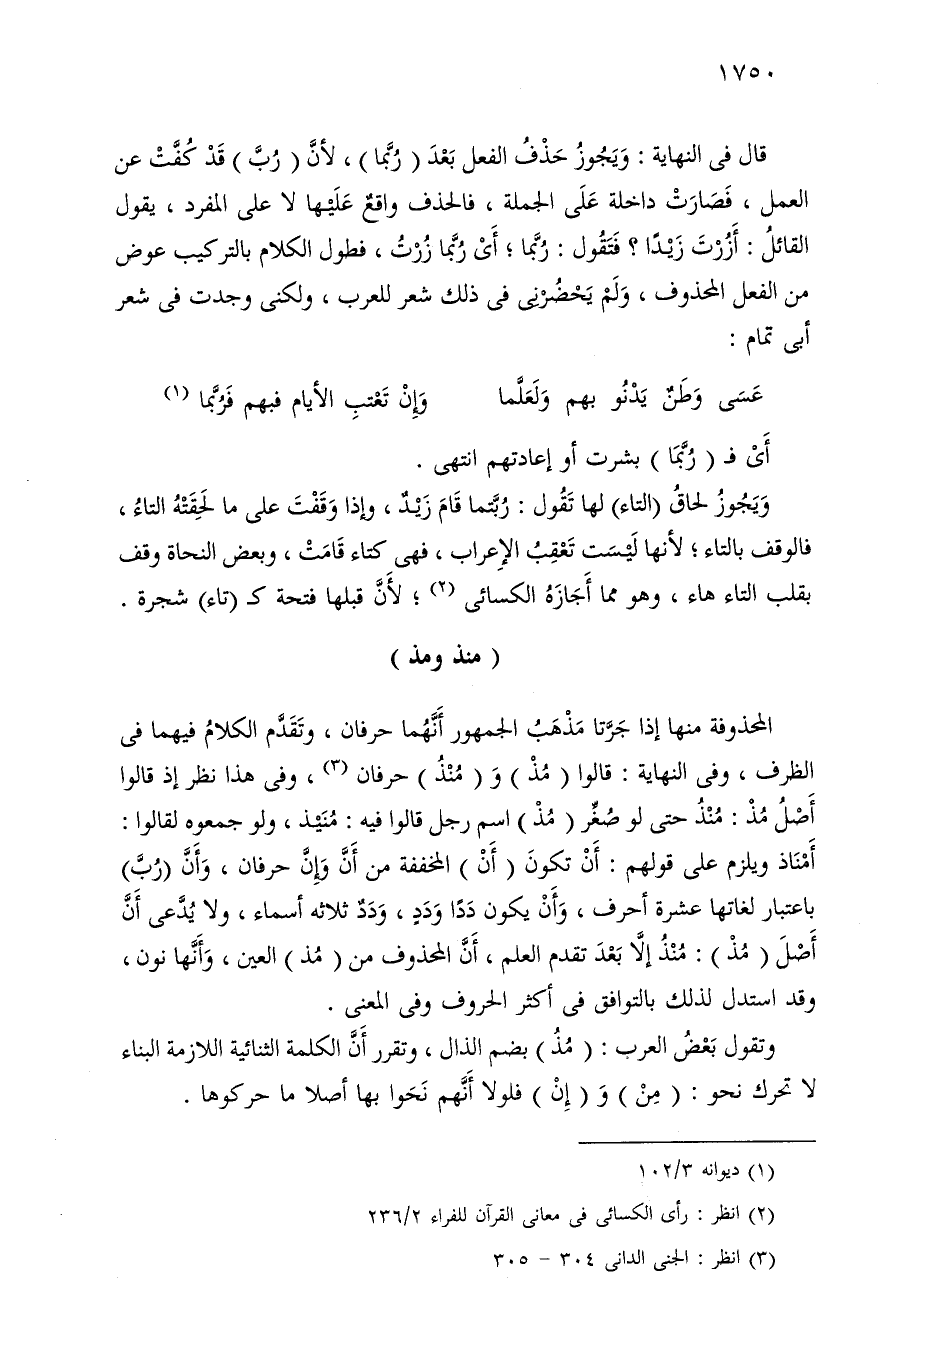 ١٧٥٠
قال فى النهاية : وَيَجُوزُ حَذْفُ الفعل بَعْدَ ( رُبَّما ) ، لأنَّ ( رُبَّ ) قَدْ كُفَّتْ عن
العمل ، فَصَارَتْ داخلة عَلَى الجملة ، فالحذف واقعٌ عَلَيْها لا على المفرد ، يقول
القائلُ : أَزُرْتَ زَيْدًا ؟ فَتَقُول : رُبَّما ؛ أَىْ رُبَّما زُرْتُ ، فطول الكلام بالتركيب عوض
من الفعل المحذوف ، وَلَمْ يَحْضُرْنِى فى ذلك شعر للعرب ، ولكنى وجدت فى شعر
أبى تمام :
عَسَى وَطَنٌ يَدْنُو بهم وَلَعَلَّما وَإِنْ تَعْتبِ الأيام فبهم فَرُبَّما (١)
أَىْ فـ ( رُبَّمَا ) بشرت أو إعادتهم انتهى .
وَيَجُوزُ لحاقُ (التاء) لها تَقُول : رُبَّتما قَامَ زَيْدٌ ، وإذا وَقَفْتَ على ما لَحِقَتْهُ التاءُ ،
فالوقف بالتاء ؛ لأنها لَيْسَت تَعْقِبُ الإعراب ، فهى كتاء قَامَتْ ، وبعض النحاة وقف
بقلب التاء هاء ، وهو مما أَجَازَهُ الكسائى (٢) ؛ لأَنَّ قبلها فتحة كـ (تاء) شجرة .
( منذ ومذ )
المحذوفة منها إذا جَرَّتا مَذْهَبُ الجمهور أَنَّهُما حرفان ، وتَقَدَّم الكلامُ فيهما فى
الظرف ، وفى النهاية : قالوا ( مُذْ ) وَ ( مُنْذُ ) حرفان (٣) ، وفى هذا نظر إذ قالوا
أَصْلُ مُذْ : مُنْذُ حتى لو صُغِّر ( مُذْ ) اسم رجل قالوا فيه : مُنَيْذ ، ولو جمعوه لقالوا :
أَمْنَاذ ويلزم على قولهم : أَنْ تكونَ ( أَنْ ) المخففة من أَنَّ وَإِنَّ حرفان ، وَأَنَّ (رُبَّ)
باعتبار لغاتها عشرة أحرف ، وَأَنْ يكون دَدًا وَدَدٍ ، وَدَدٌ ثلاثه أسماء ، ولا يُدَّعى أَنَّ
أَصْلَ ( مُذْ ) : مُنْذُ إلَّا بَعْدَ تقدم العلم ، أَنَّ المحذوف من ( مُذ ) العين ، وَأَنَّها نون ،
وقد استدل لذلك بالتوافق فى أكثر الحروف وفى المعنى .
وتقول بَعْضُ العرب : ( مُذُ ) بضم الذال ، وتقرر أَنَّ الكلمة الثنائية اللازمة البناء
لا تحرك نحو : ( مِنْ ) وَ ( إِنْ ) فلولا أَنَّهم نَحَوا بها أصلا ما حركوها .
(١) ديوانه ١٠٢/٣
(٢) انظر : رأى الكسائى فى معانى القرآن للفراء ٢٣٦/٢
(٣) انظر : الجنى الدانى ٣٠٤ – ٣٠٥